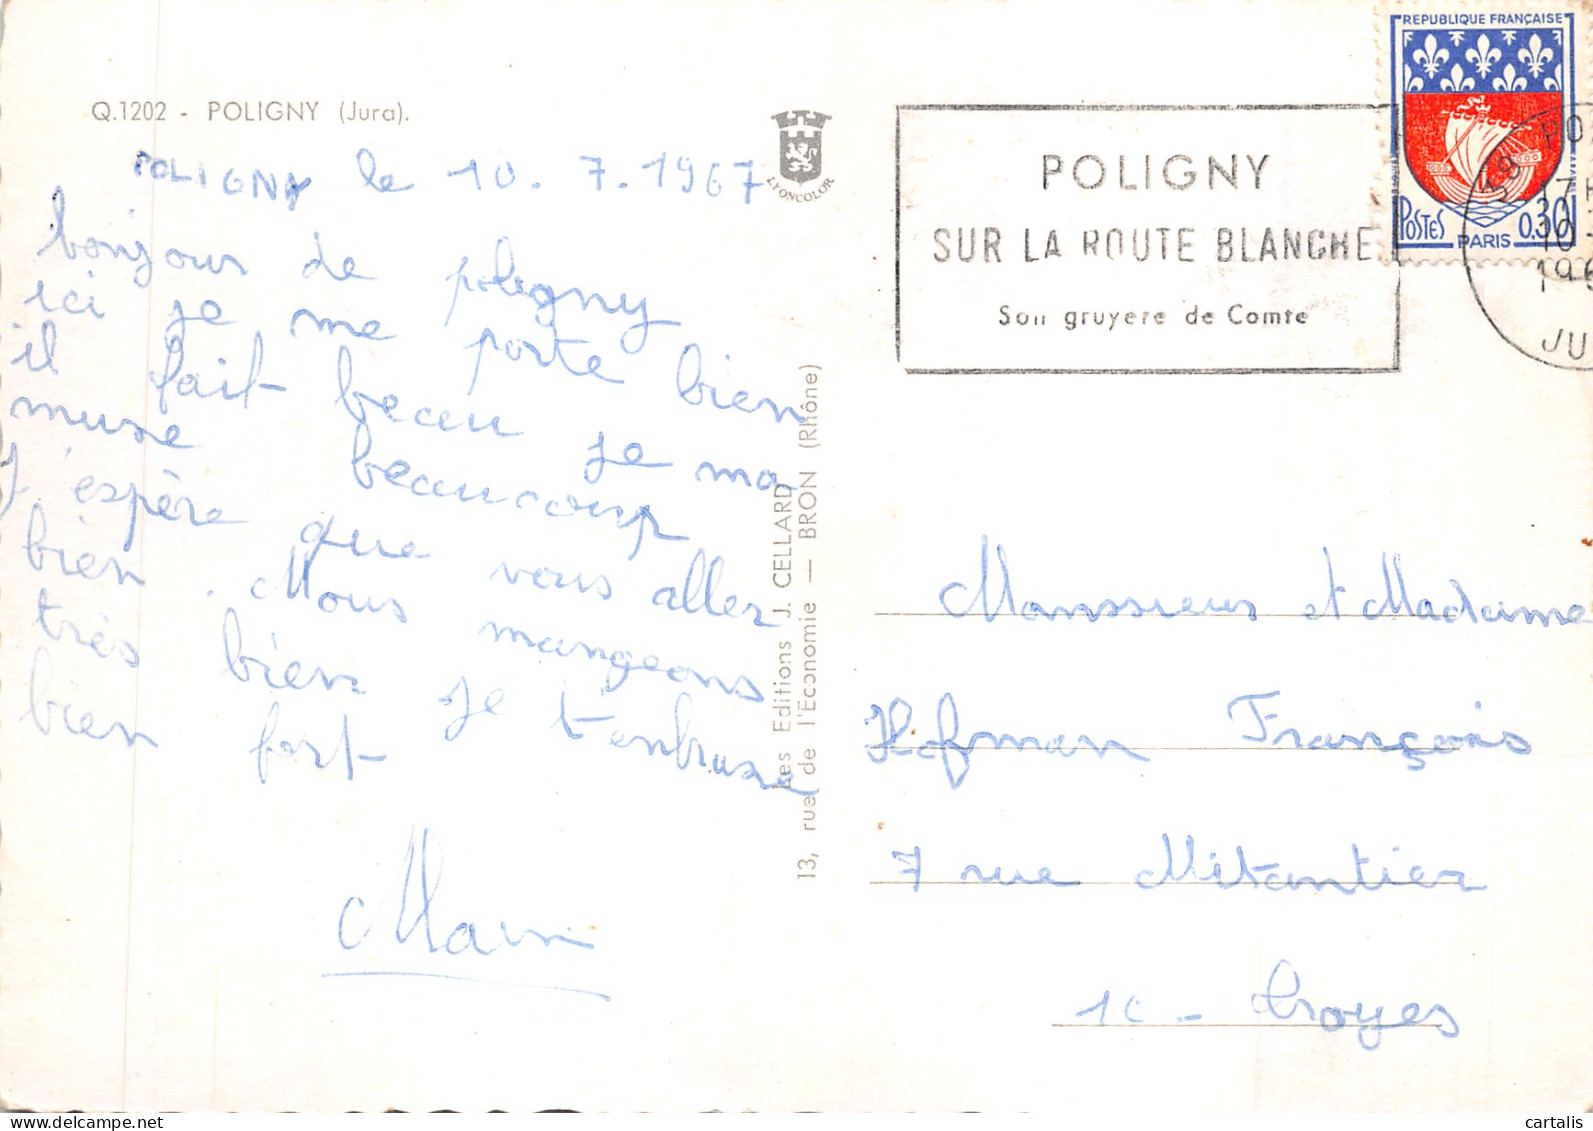 Q.1202 - POLIGNY (Jura).
POLIGNY le 10.7.1967
bonjour de poligny
ici je me porte bien
il fait beau je ma
muse beaucoup
J'espère que vous allez
bien. Nous mangeons
très bien je t'enbrasse
bien fort
LYONCOLOR
Les Editions J. CELLARD
13, rue de l'Economie — BRON (Rhône)
POLIGNY
SUR LA ROUTE BLANCHE
Son gruyere de Comte
REPUBLIQUE FRANÇAISE
POSTES PARIS 0,30
39 PO
17 H
10 -
196
JU
Monssieus et Madame
Hofman François
7 rue Mitantier
10 - Troyes